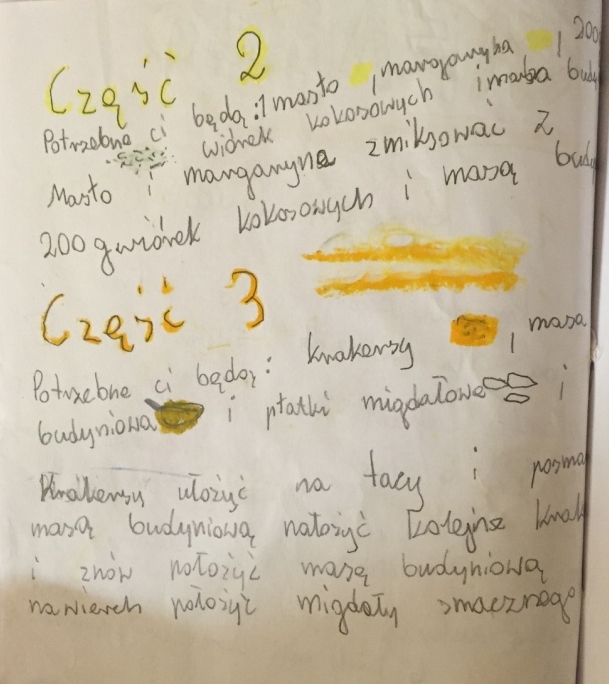 Część 2
Potrzebne ci będą: 1 masło , marganyna , 200
wiórek kokosowych i masa budy
Masło i marganyne zmiksować z
200 g wiórek kokosowych i masą budy
Część 3
Potrzebne ci będą: krakersy , masa
budyniowa i płatki migdałowe i
Krakersy ułożyć na tacy i posma
masą budyniową nałożyć kolejne krak
i znów położyć masę budyniową
na wierch położyć migdały smacznego